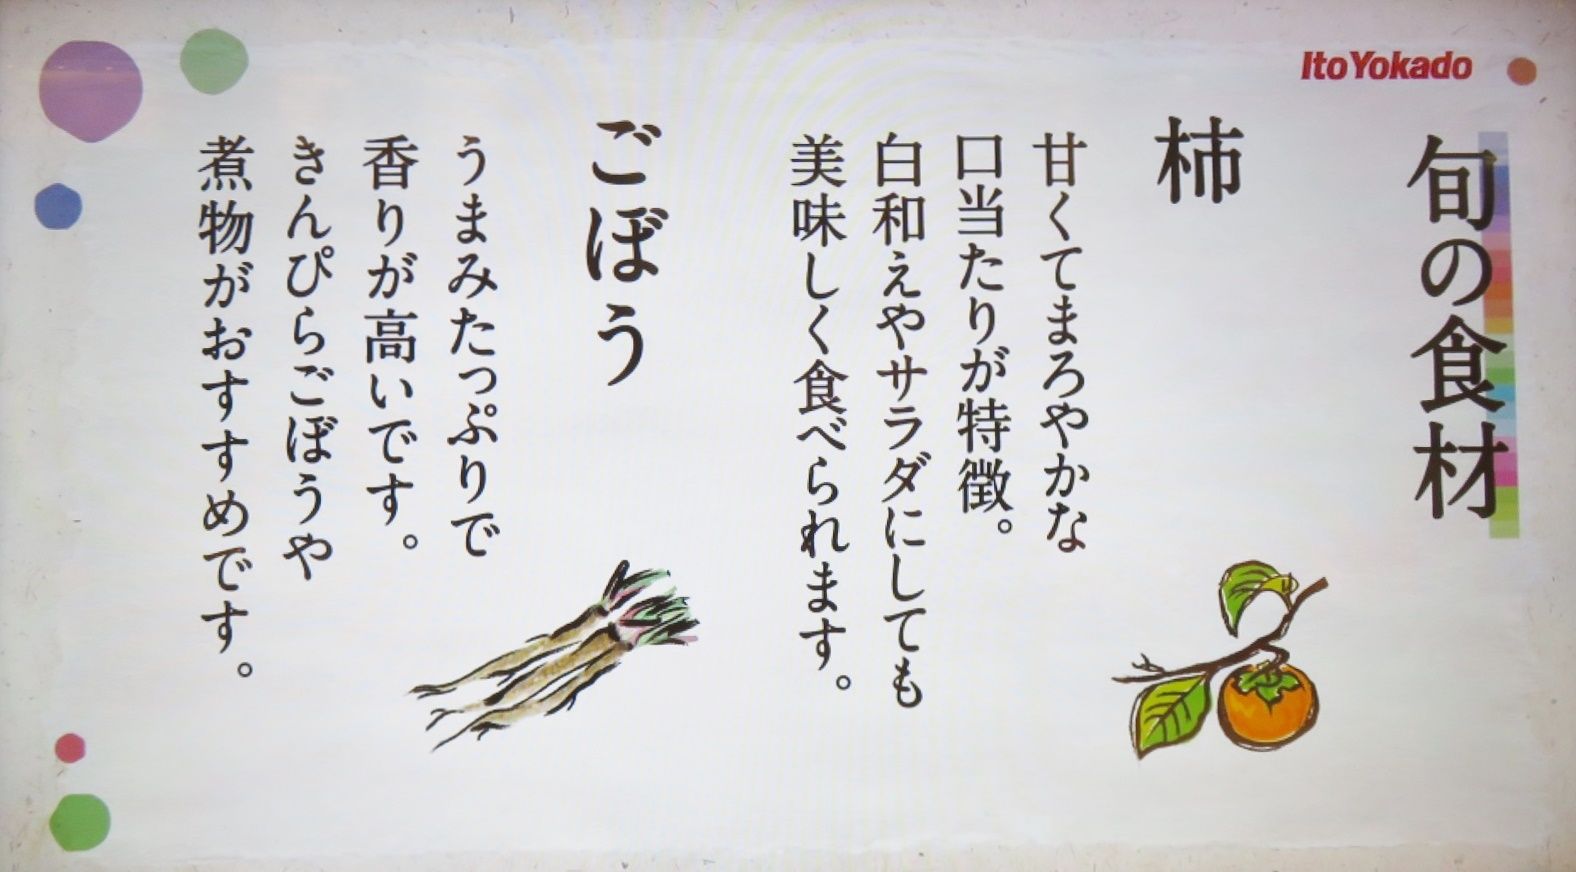 Ito Yokado
旬の食材
柿
甘くてまろやかな
口当たりが特徴。
白和えやサラダにしても
美味しく食べられます。
ごぼう
うまみたっぷりで
香りが高いです。
きんぴらごぼうや
煮物がおすすめです。